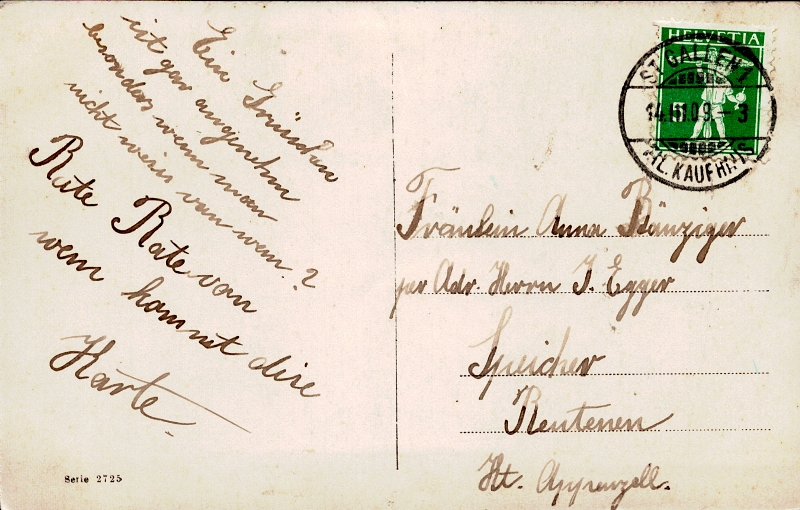 Ein Grüschen
ist gar angenehm
besonders wenn man
nicht weis van wem?
Rate Rate van
wem kommt dise
Karte.
Serie 2725
HELVETIA
ST. GALLEN 1
14.III.09.–3
FIL. KAUFHAUS
Fräulein Anna Bänziger
per Adr. Herrn J. Egger
Speicher
Reutenen
Kt. Appenzell.